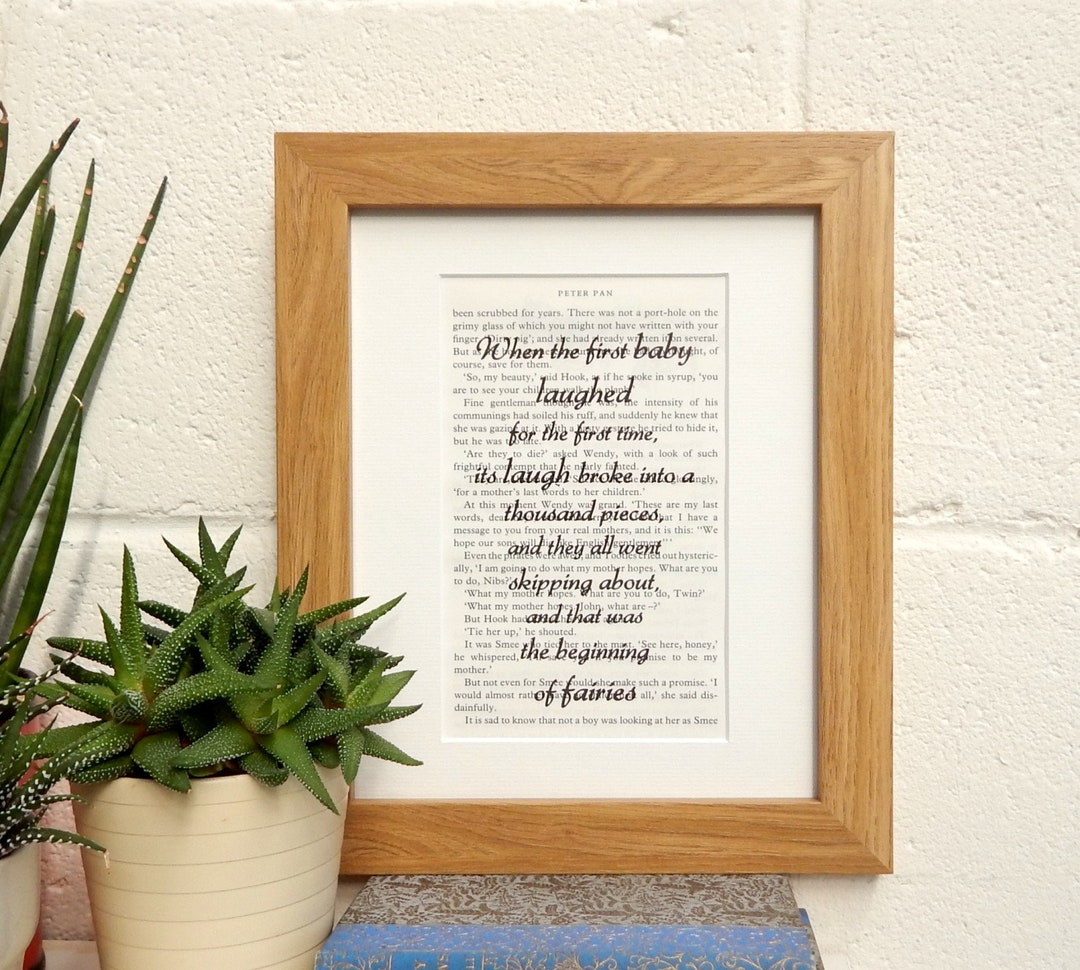 PETER PAN
been scrubbed for years. There was not a port-hole on the
grimy glass of which you might not have written with your
finger 'Dirty pig'; and she had already written it on several.
But as of
course, save for them.
'So, my beauty,' said Hook, as if he spoke in syrup, 'you
are to see your children walk the plank.'
Fine gentleman though he was, the intensity of his
communings had soiled his ruff, and suddenly he knew that
she was gazing at it. With a hasty gesture he tried to hide it,
but he was too late.
'Are they to die?' asked Wendy, with a look of such
frightful contempt that he nearly fainted.
'for a mother's last words to her children.'
At this moment Wendy was grand. 'These are my last
words, that I have a
message to you from your real mothers, and it is this: "We
hope our sons will die like English gentlemen" '
Even the pirates were awed, and Tootles cried out hyster-
ically, 'I am going to do what my mother hopes. What are you
to do, Nibs?'
'What my mother hopes. What are you to do, Twin?'
'What my mother hopes. John, what are –?'
But Hook had
'Tie her up,' he shouted.
It was Smee who tied her to the mast. 'See here, honey,'
he whispered, promise to be my
mother.'
But not even for Smee would she make such a promise. 'I
would almost rather all,' she said dis-
dainfully.
It is sad to know that not a boy was looking at her as Smee
When the first baby
laughed
for the first time,
its laugh broke into a
thousand pieces,
and they all went
skipping about,
and that was
the beginning
of fairies